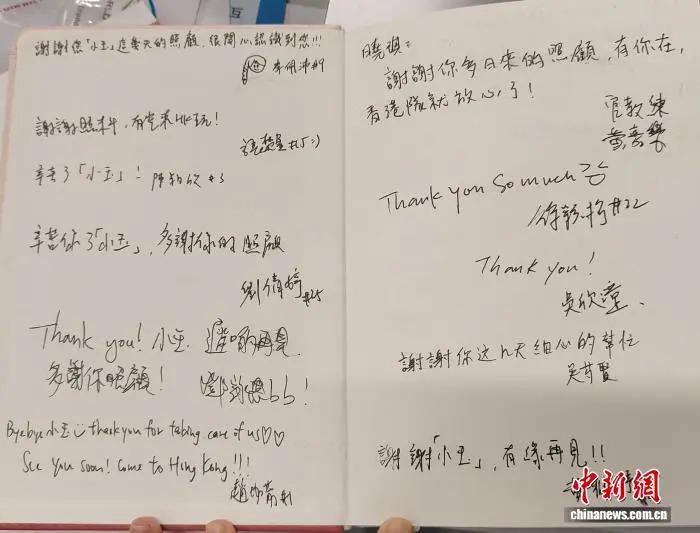 謝謝您「小玉」這幾天的照顧,很開心認識到您!!!
#9
謝謝照未牛,有空來HK玩!
#15 :)
辛苦了「小玉」! #3
辛苦你了「小玉」,多謝你的照顧
劉倩婷 #25
Thank you! 小玉. 遲啲再見
多謝你照顧! bb!
Byebye 小玉 thank you for taking care of us♡♡
See you soon! Come to Hong Kong!!!
曉琪:
謝謝你多日來的照顧,有你在,
香港隊就放心了!
官教練
Thank you so much
#22
Thank you!
吳欣
謝謝你这几天细心的幫忙
謝謝「小玉」,有緣再見!!
中新網
chinanews.com.cn